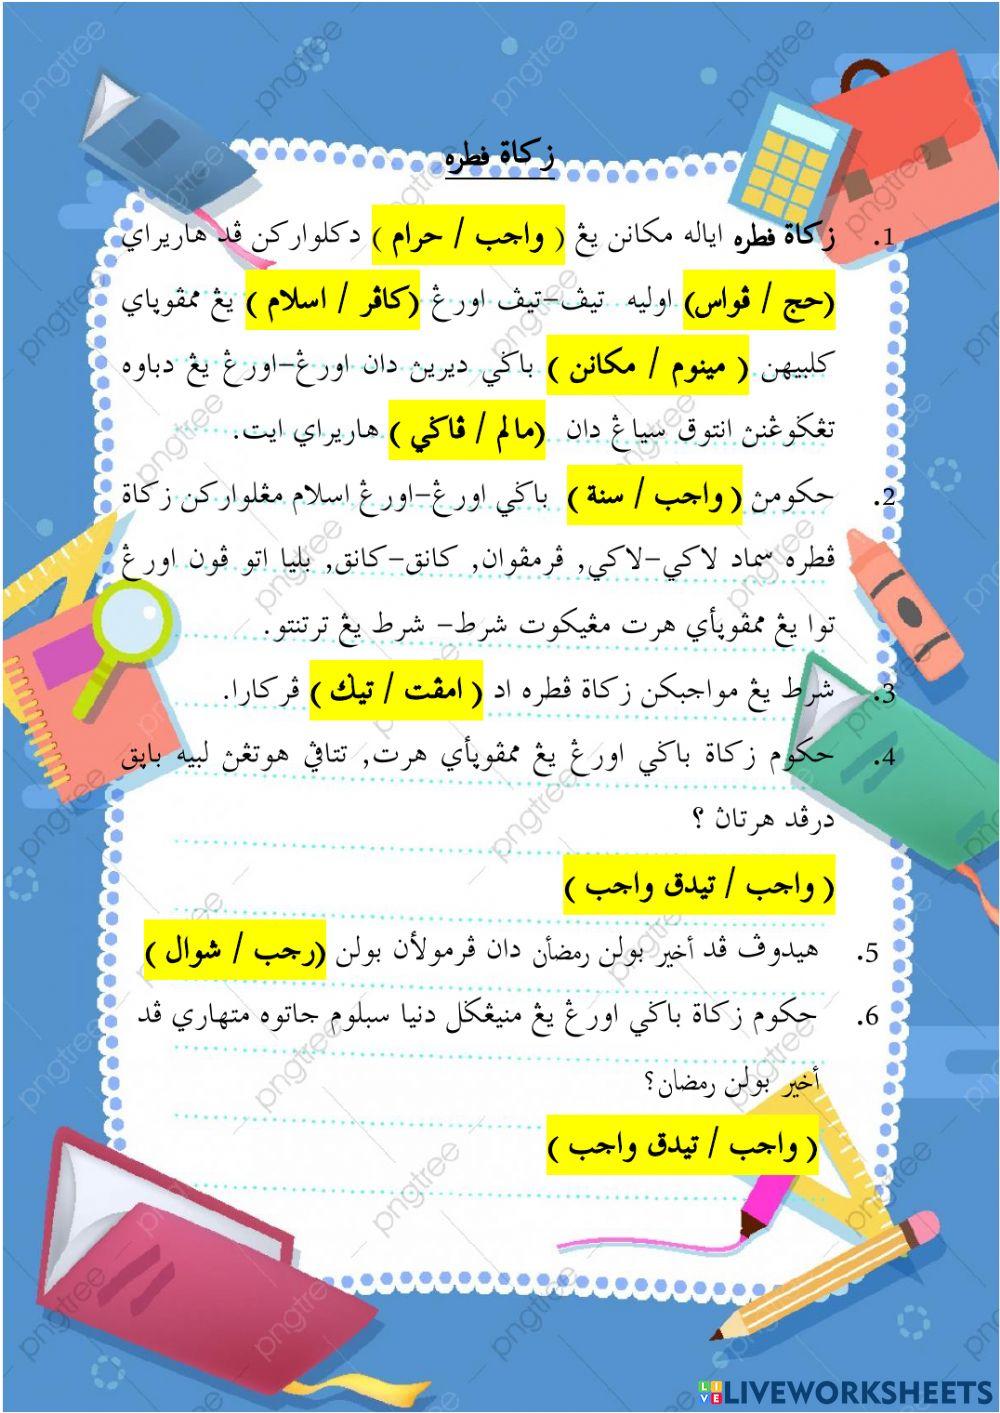 زكاة فطره
1. زكاة فطره اياله مكانن يڠ ( واجب / حرام ) دكلواركن ڤد هاريراي
(حج / ڤواس) اوليه تيڤ-تيڤ اورڠ (كاڤر / اسلام ) يڠ ممڤوياي
كلبيهن ( مينوم / مكانن ) باݢي ديرين دان اورڠ-اورڠ يڠ دباوه
تڠݢوڠنڽ انتوق سياڠ دان (مالم / ڤاݢي ) هاريراي ايت.
2. حكومڽ ( واجب / سنة ) باݢي اورڠ-اورڠ اسلام مڠلواركن زكاة
ڤطره سماد لاكي-لاكي, ڤرمڤوان, كانق-كانق, بليا اتو ڤون اورڠ
توا يڠ ممڤوڽأي هرت مڠيكوت شرط- شرط يڠ ترتنتو.
3. شرط يڠ مواجبكن زكاة ڤطره اد ( امڤت / تيݢ ) ڤركارا.
4. حكوم زكاة باݢي اورڠ يڠ ممڤوڽأي هرت, تتاڤي هوتڠڽ لبيه باڽق
درڤد هرتاڽ ؟
( واجب / تيدق واجب )
5. هيدوڤ ڤد أخير بولن رمضأن دان ڤرمولأن بولن (رجب / شوال )
6. حكوم زكاة باݢي اورڠ يڠ منيڠݢل دنيا سبلوم جاتوه متهاري ڤد
أخير بولن رمضان؟
( واجب / تيدق واجب )
pngtree
LIVEWORKSHEETS